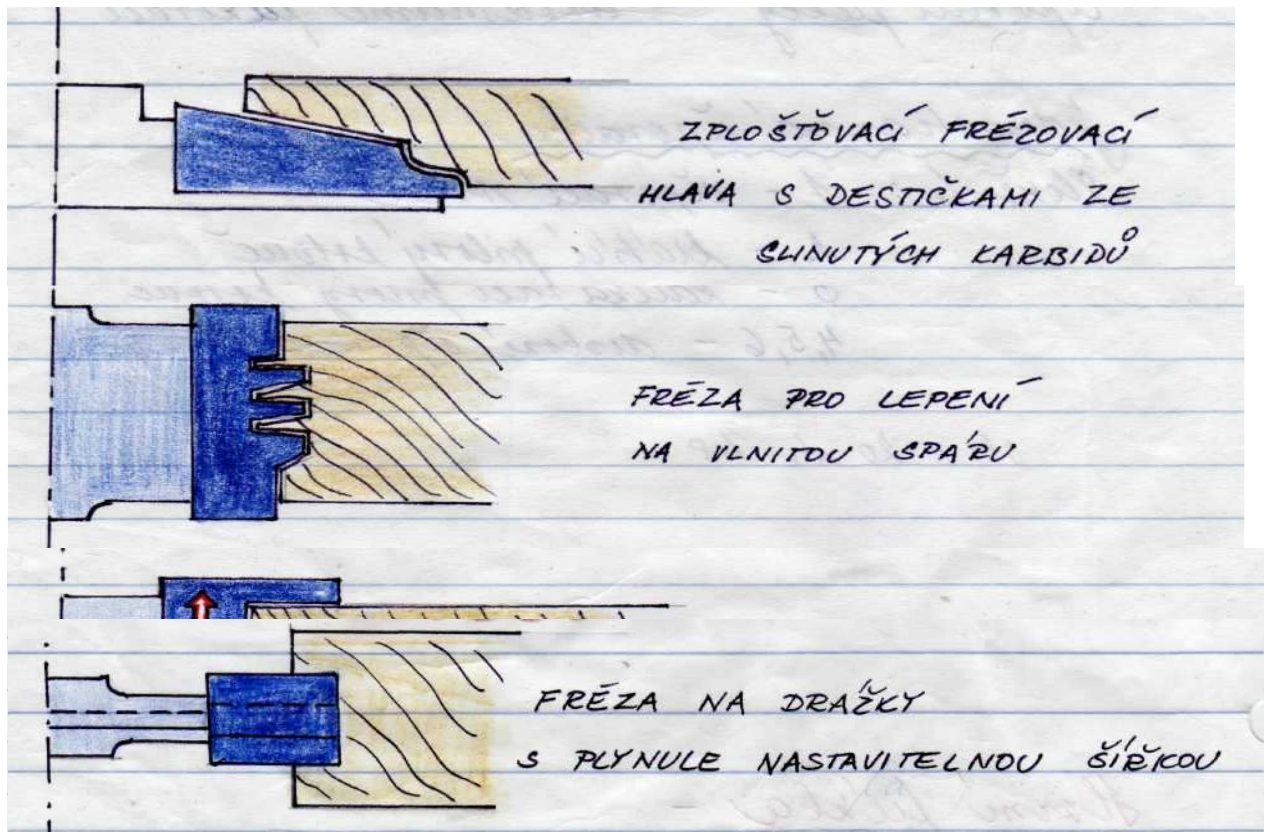 ZPLOŠŤOVACÍ FRÉZOVACÍ
HLAVA S DESTIČKAMI ZE
SLINUTÝCH KARBIDŮ
4,5,6 -
FRÉZA PRO LEPENÍ
NA VLNITOU SPÁRU
FRÉZA NA DRÁŽKY
S PLYNULE NASTAVITELNOU ŠÍŘKOU